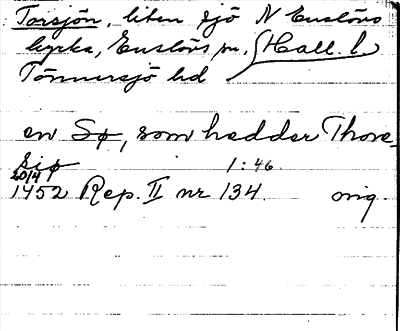 Torsjön, liten sjö N Enslövs
kyrka, Enslövs sn, (Hall. l.)
Tönnersjö hd
en Sø, som hedder Thore-
siø 1:46.
20/4
1452 Rep. II nr 134. orig.